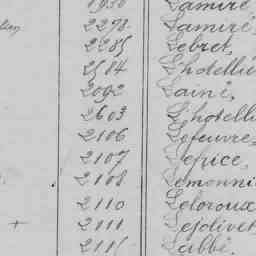 1930 Lamiré
2278 Lamiré
2285 Lebret,
2584 L'hotelli
2092 Lainé,
2603 L'hotelli
2106 Lefeuvre,
2107 Lepice,
2108 Lemonni
2110 Leloroux
+ 2111 Lejolivet
Labbé.